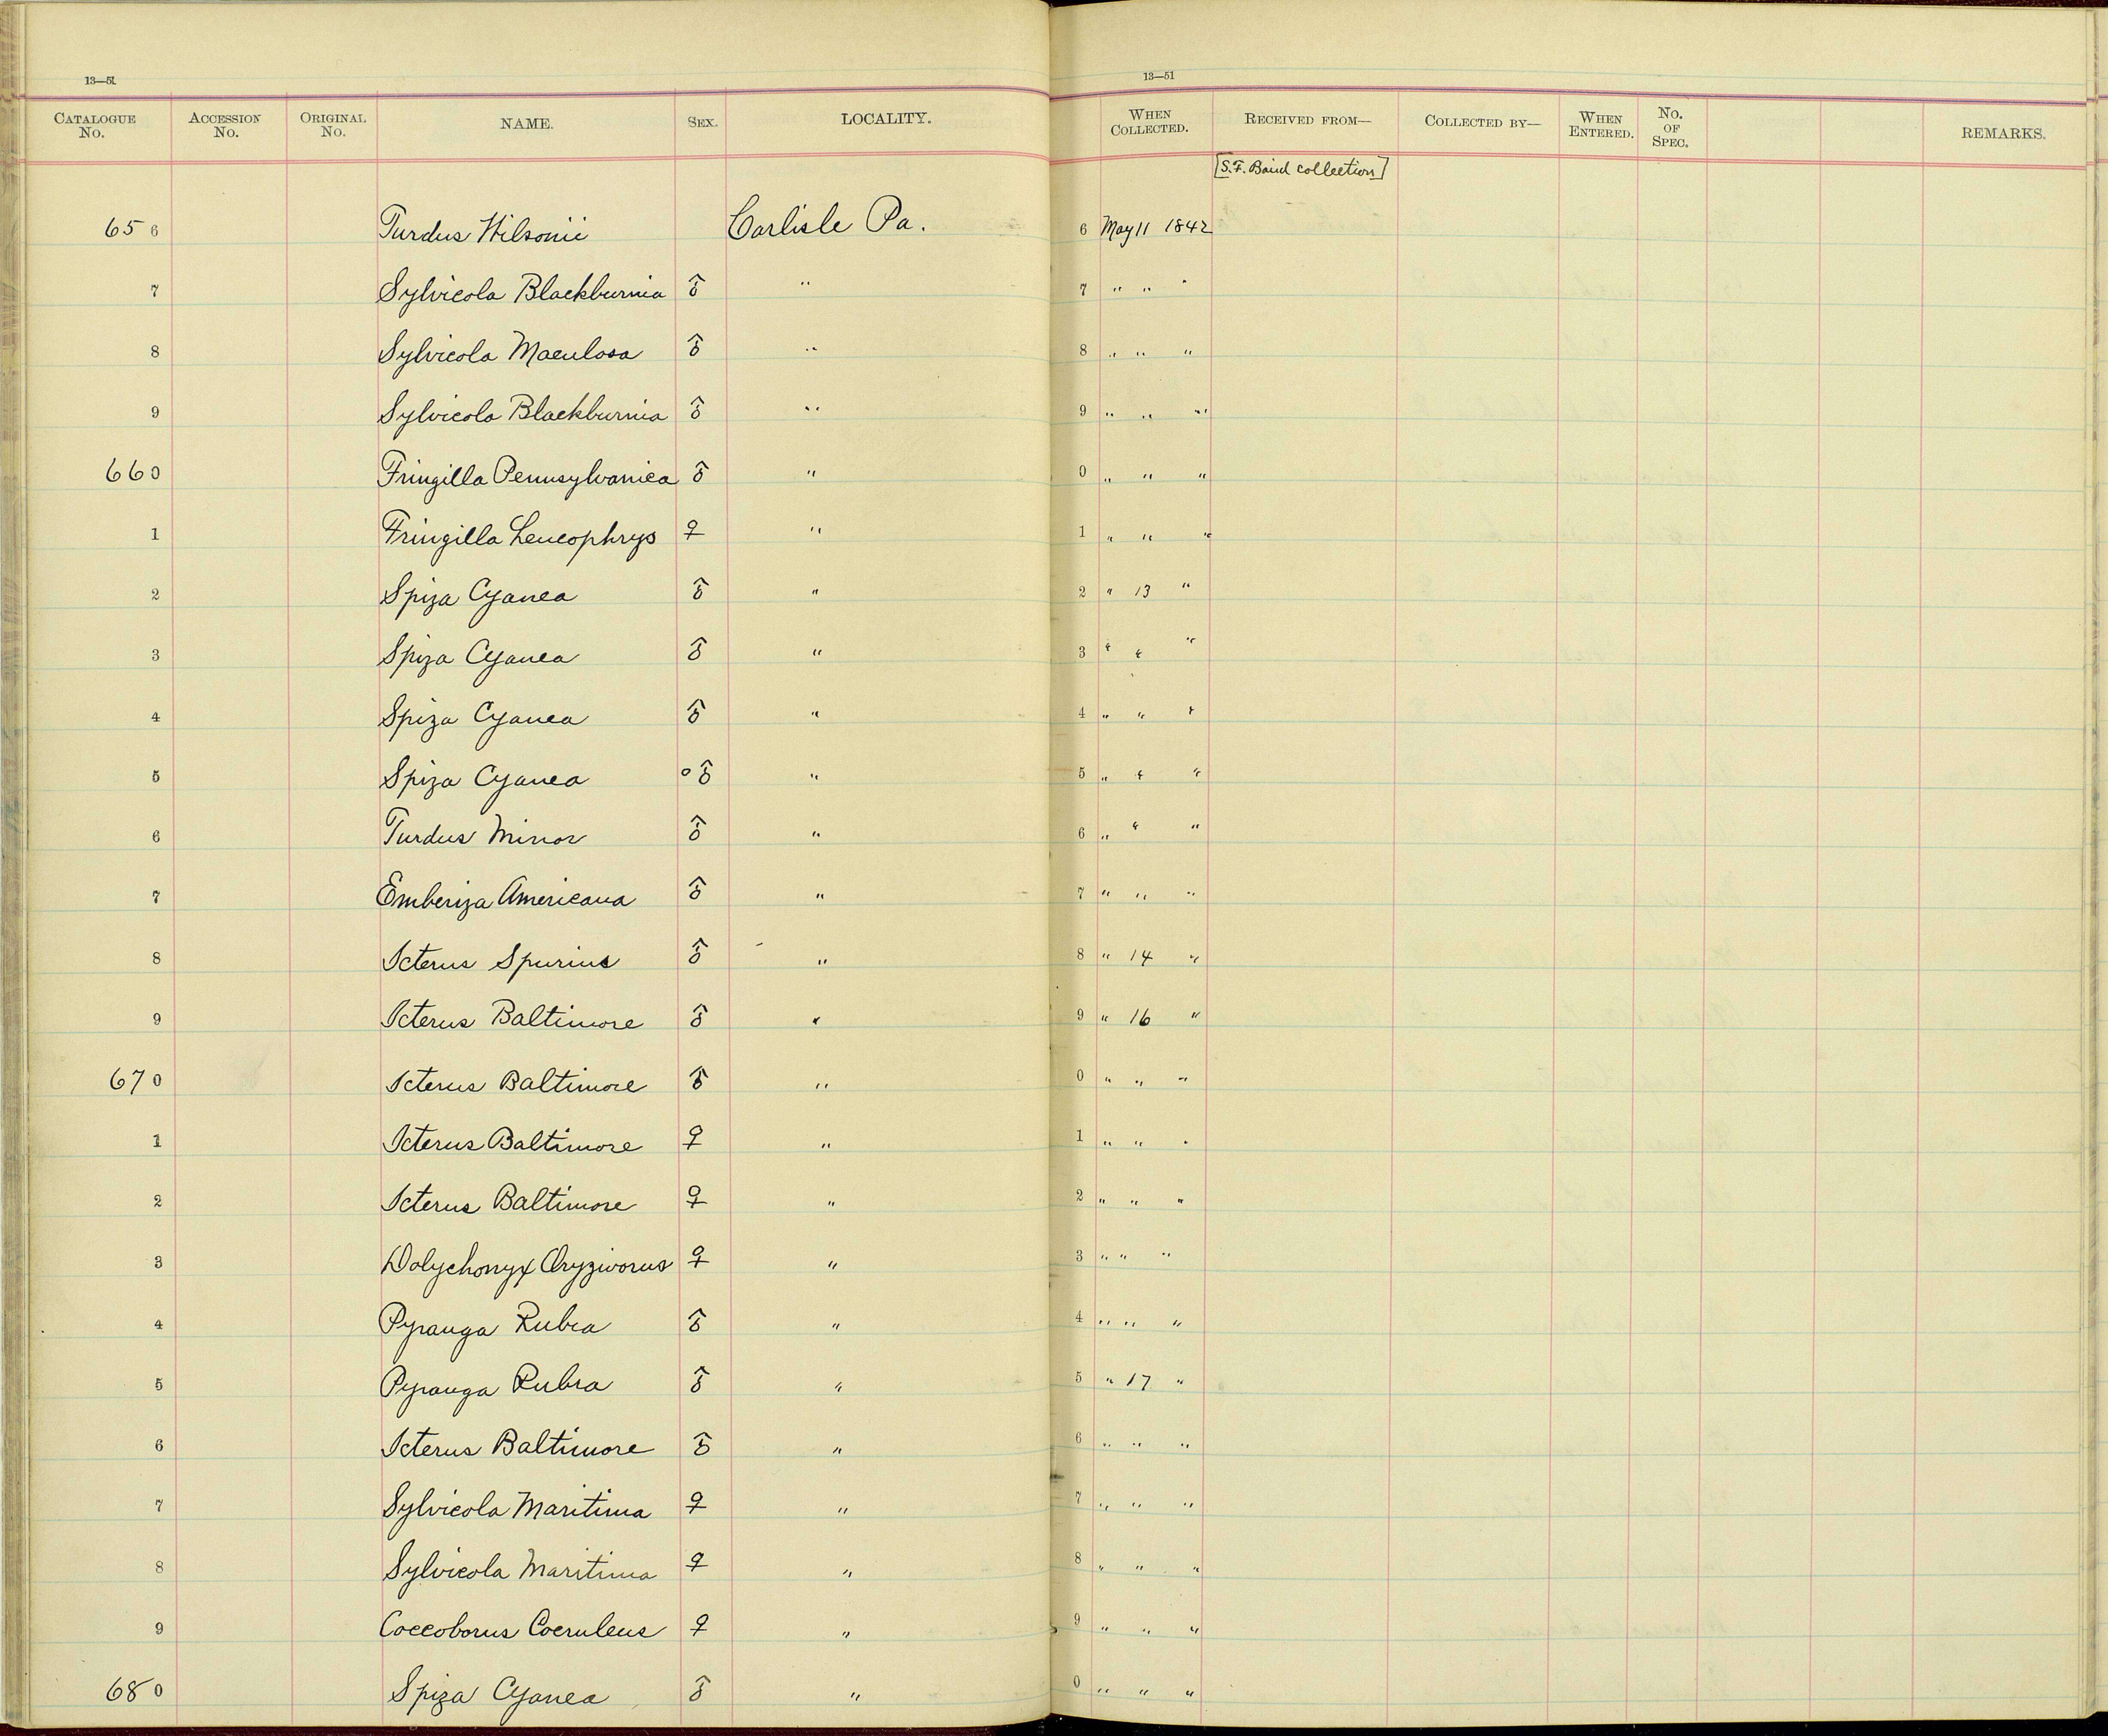 13—51 13—51
CATALOGUE No. ACCESSION No. ORIGINAL No. NAME. SEX. LOCALITY. WHEN COLLECTED. RECEIVED FROM— COLLECTED BY— WHEN ENTERED. No. OF SPEC. REMARKS.
[S.F. Baird collection]
656 Turdus Wilsonii Carlisle Pa. 6 May 11 1842
7 Sylvicola Blackburnia ♂ " 7 " " "
8 Sylvicola Maculosa ♂ " 8 " " "
9 Sylvicola Blackburnia ♂ " 9 " " "
660 Fringilla Pennsylvanica ♂ " 0 " " "
1 Fringilla Leucophrys ♀ " 1 " " "
2 Spiza Cyanea ♂ " 2 " 13 "
3 Spiza Cyanea ♂ " 3 " " "
4 Spiza Cyanea ♂ " 4 " " "
5 Spiza Cyanea o ♂ " 5 " " "
6 Turdus Minor ♂ " 6 " " "
7 Emberiza Americana ♂ " 7 " " "
8 Icterus Spurius ♂ " 8 " 14 "
9 Icterus Baltimore ♂ " 9 " 16 "
670 Icterus Baltimore ♂ " 0 " " "
1 Icterus Baltimore ♀ " 1 " " "
2 Icterus Baltimore ♀ " 2 " " "
3 Dolychonyx Oryzivorus ♀ " 3 " " "
4 Pyranga Rubra ♂ " 4 " " "
5 Pyranga Rubra ♂ " 5 " 17 "
6 Icterus Baltimore ♂ " 6 " " "
7 Sylvicola Maritima ♀ " 7 " " "
8 Sylvicola Maritima ♀ " 8 " " "
9 Coccoborus Coeruleus ♀ " 9 " " "
680 Spiza Cyanea ♂ " 0 " " "